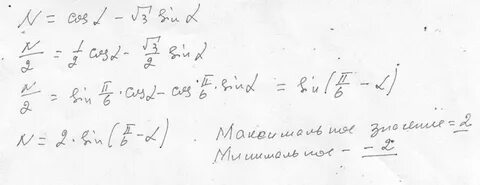 N = cos α − √3 sin α
N/2 = 1/2 cos α − √3/2 sin α
N/2 = sin π/6 · cos α − cos π/6 · sin α = sin(π/6 − α)
N = 2 · sin(π/6 − α). Максимальное значение = 2
Минимальное − − 2